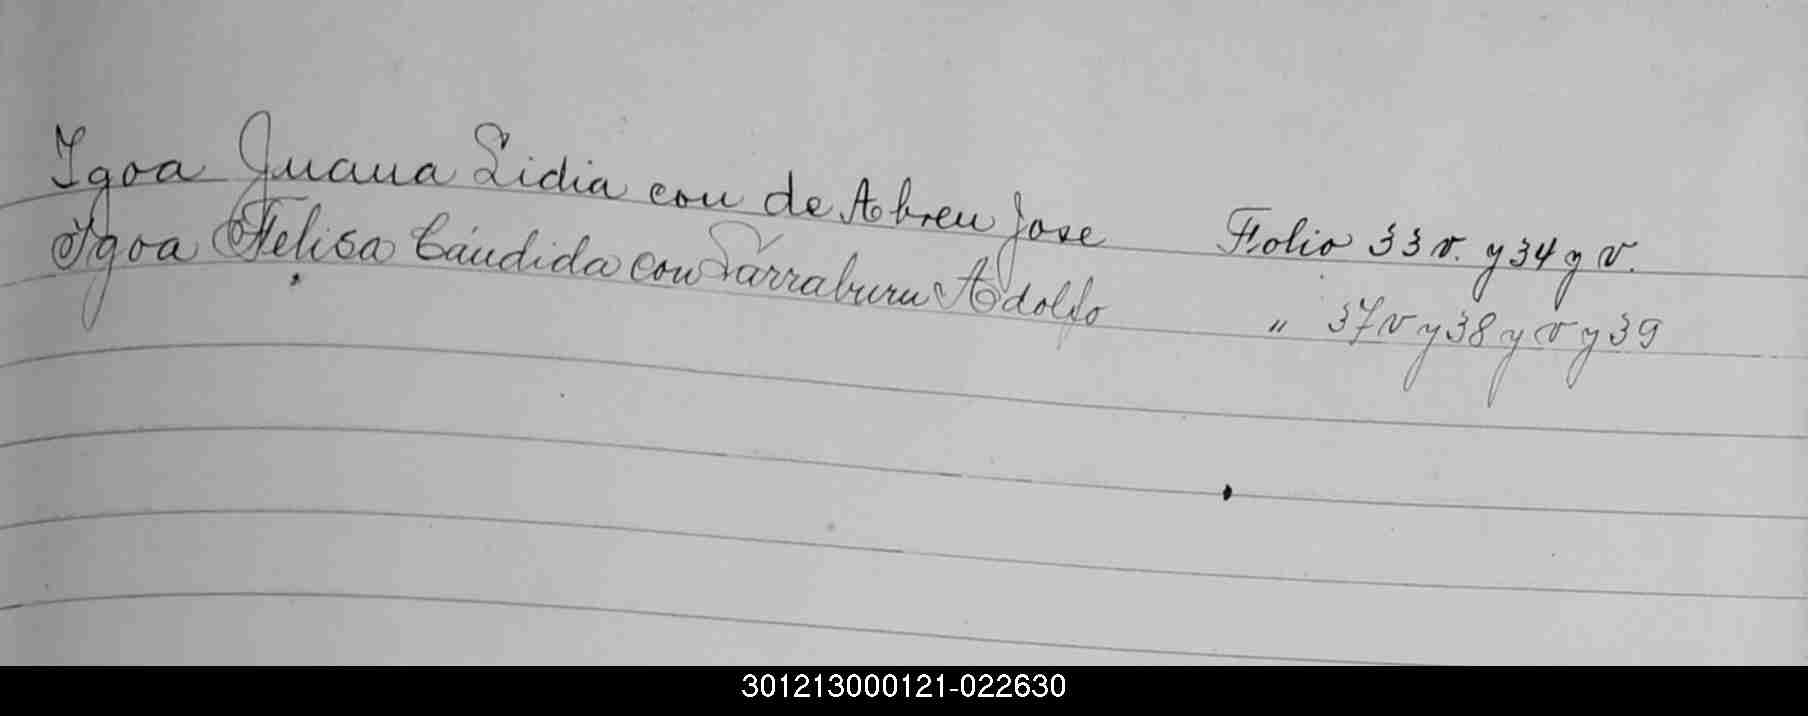 Igoa Juana Lidia con de Abreu Jose Folio 33 v. y 34 y v.
Igoa Felisa Cándida con Larraburu Adolfo " 37 v y 38 y v y 39
301213000121-022630